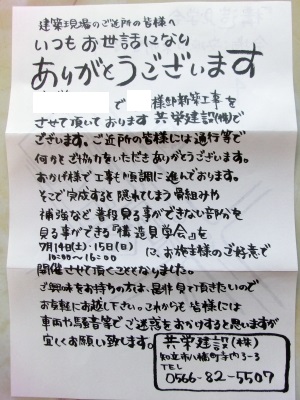 建築現場のご近所の皆様へ
いつもお世話になり
ありがとうございます
で 様邸新築工事を
させて頂いております 共栄建設(株)で
ございます。ご近所の皆様には通行等で
何かとご協力をいただきありがとうございます。
おかげ様で工事も順調に進んでおります。
そこで完成すると隠れてしまう骨組みや
補強など普段見る事ができない部分を
見る事ができる『構造見学会』を
7月14日(土)・15日(日)
10:00〜16:00
に、お施主様のご好意で
開催させて頂くこととなりました。
ご興味をお持ちの方は、是非見て頂きたいので
お気軽にお越し下さい。これからも皆様には
車両や騒音等でご迷惑をおかけすると思いますが
宜しくお願い致します。
共栄建設(株)
知立市八橋町寺内3-3
TEL
0566-82-5507